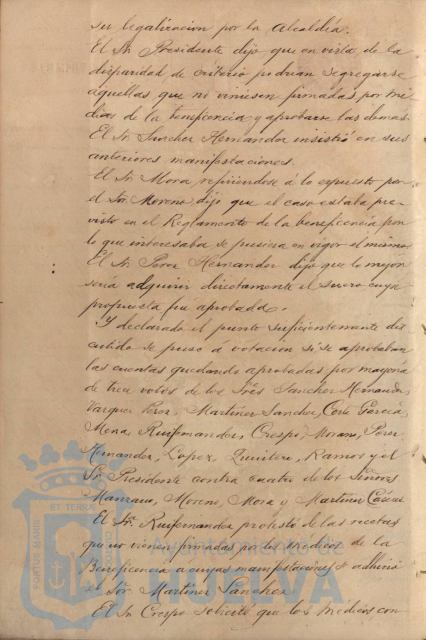 su legalizacion por la Alcaldía.
El Sr Presidente dijo que en vista de la
disparidad de criterio podrian segregarse
aquellas que no viniesen firmadas por mé
dicos de la beneficencia y aprobarse las demas.
El Sr Sanchez Hernandez insistió en sus
anteriores manifestaciones.
El Sr Mora, refiriendose á lo expuesto por
el Sr Moreno, dijo que el caso estaba pre-
visto en el Reglamento de la beneficencia por
lo que interesaba se pusiera en vigor el mismo
El Sr Perez Hernandez dijo que lo mejor
seria adquirir directamente el suero cuya
propuesta fué aprobada.
Y declarado el punto suficientemente dis
cutido se puso á votacion si se aprobaban
las cuentas quedando aprobadas por mayoria
de trece votos de los Sres Sanchez Hernandez
Vazquez Perez, Martinez Sanchez, Corte Garcia,
Mena, Ruifernandez, Crespo, Morano, Perez
Hernandez, Lopez, Quintero, Ramos y el
Sr Presidente contra cuatro de los Señores
Manzano, Moreno, Mora y Martinez
El Sr Ruifernandez protestó de las recetas
que no vienen firmadas por los Medicos de la
Beneficencia a cuyas manifestaciones se adhirió
el Sor Martinez Sanchez
El Sr Crespo solicitó que los médicos con
PORTUS MARIS
ET TERRAE
Ayuntamiento de
HUELVA